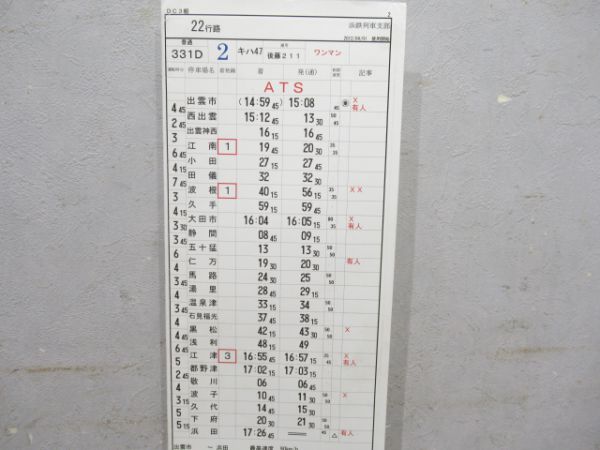 DC3組 2
22行路 浜鉄列車支部
普通
331D 2 キハ47 後藤211 ワンマン
停車場名 着 発(通) 記事
ATS
出雲市 (14:59 45) 15:08 45 X 有人
4 45 西出雲 15:12 45 13 30
2 45 出雲神西 16 15 16 45
3 江南 1 19 45 20 30
6 45 小田 27 15 27 45
4 45 田儀 32 32 30
7 45 波根 1 40 15 56 15 X X
3 久手 59 15 59 45
4 15 大田市 16:04 16:05 15 X 有人
3 30 静間 08 45 09 15
3 45 五十猛 13 13 30
6 仁万 19 30 20 30 有人
4 馬路 24 30 25
3 30 湯里 28 45 29 15
4 温泉津 33 15 34
3 45 石見福光 37 45 38 15
4 30 黒松 42 45 43 30 X
4 45 浅利 48 15 49
6 45 江津 3 16:55 45 16:57 15 X 有人
5 都野津 17:02 15 17:03 15
敬川 06 06 45
4 波子 10 45 11 30 X
3 15 久代 14 45 15 30
5 下府 20 30 21 30
5 15 浜田 17:26 45 有人
出雲市 〜 浜田 最高速度